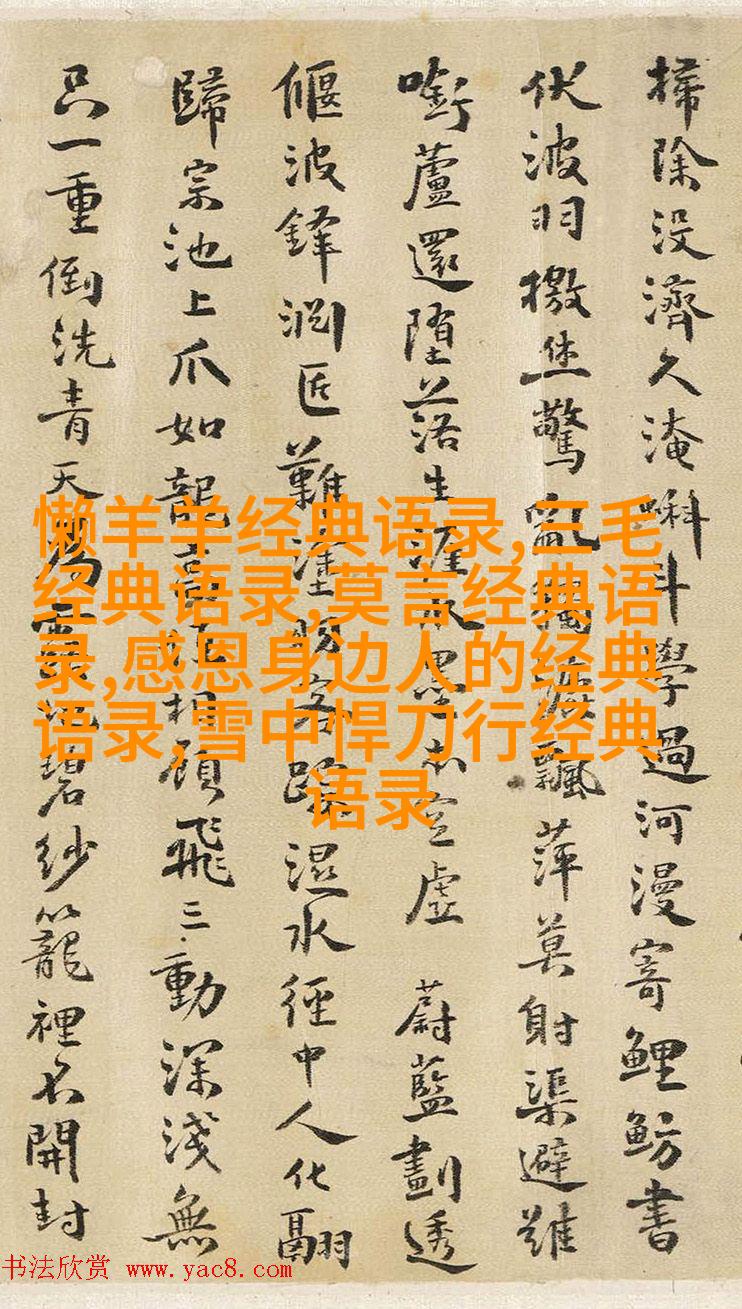 掃除没濟久淹蝌斗學過河漫寄鯉魴書
伏波羽檄坐驚亂飄萍莫射渠避
啣蘆還墮落生涯水墨亦空虛 蔚藍劃透
偃波鋒澗匠難塗濕水徑中人化翮
歸宗池上爪如龍相顧飛三動深淺無
只一重倒洗青天碧紗籠裡不開封
懒羊羊经典语录,三毛
经典语录,莫言经典语
录,感恩身边人的经典
语录,雪中悍刀行经典
语录
书法欣赏 www.yac8.com